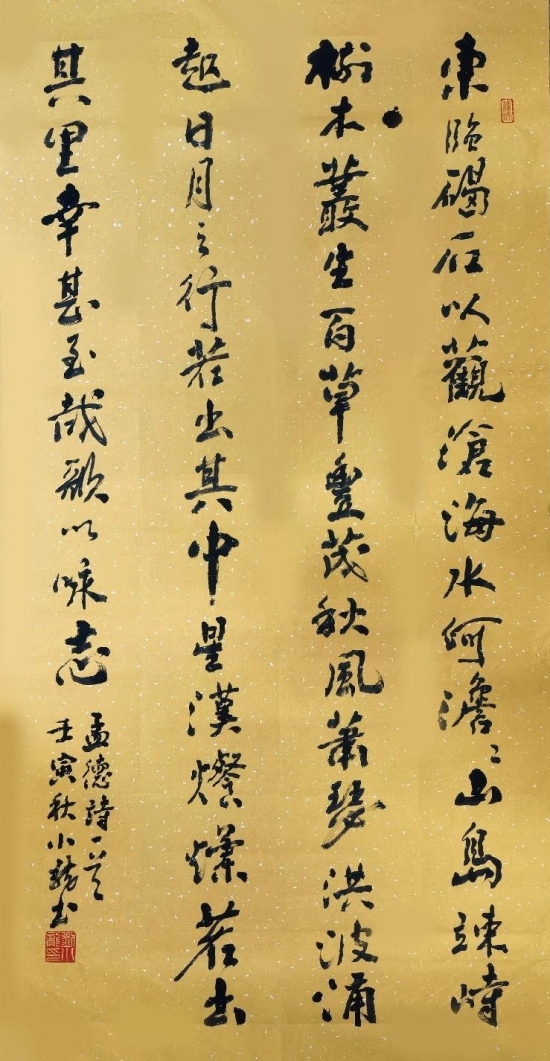 東臨碣石以觀滄海水何澹〻山島竦峙
樹木叢生百草豐茂秋風蕭瑟洪波涌
起日月之行若出其中星漢燦爛若出
其里幸甚至哉歌以咏志
孟德詩一首
壬寅秋小龍书